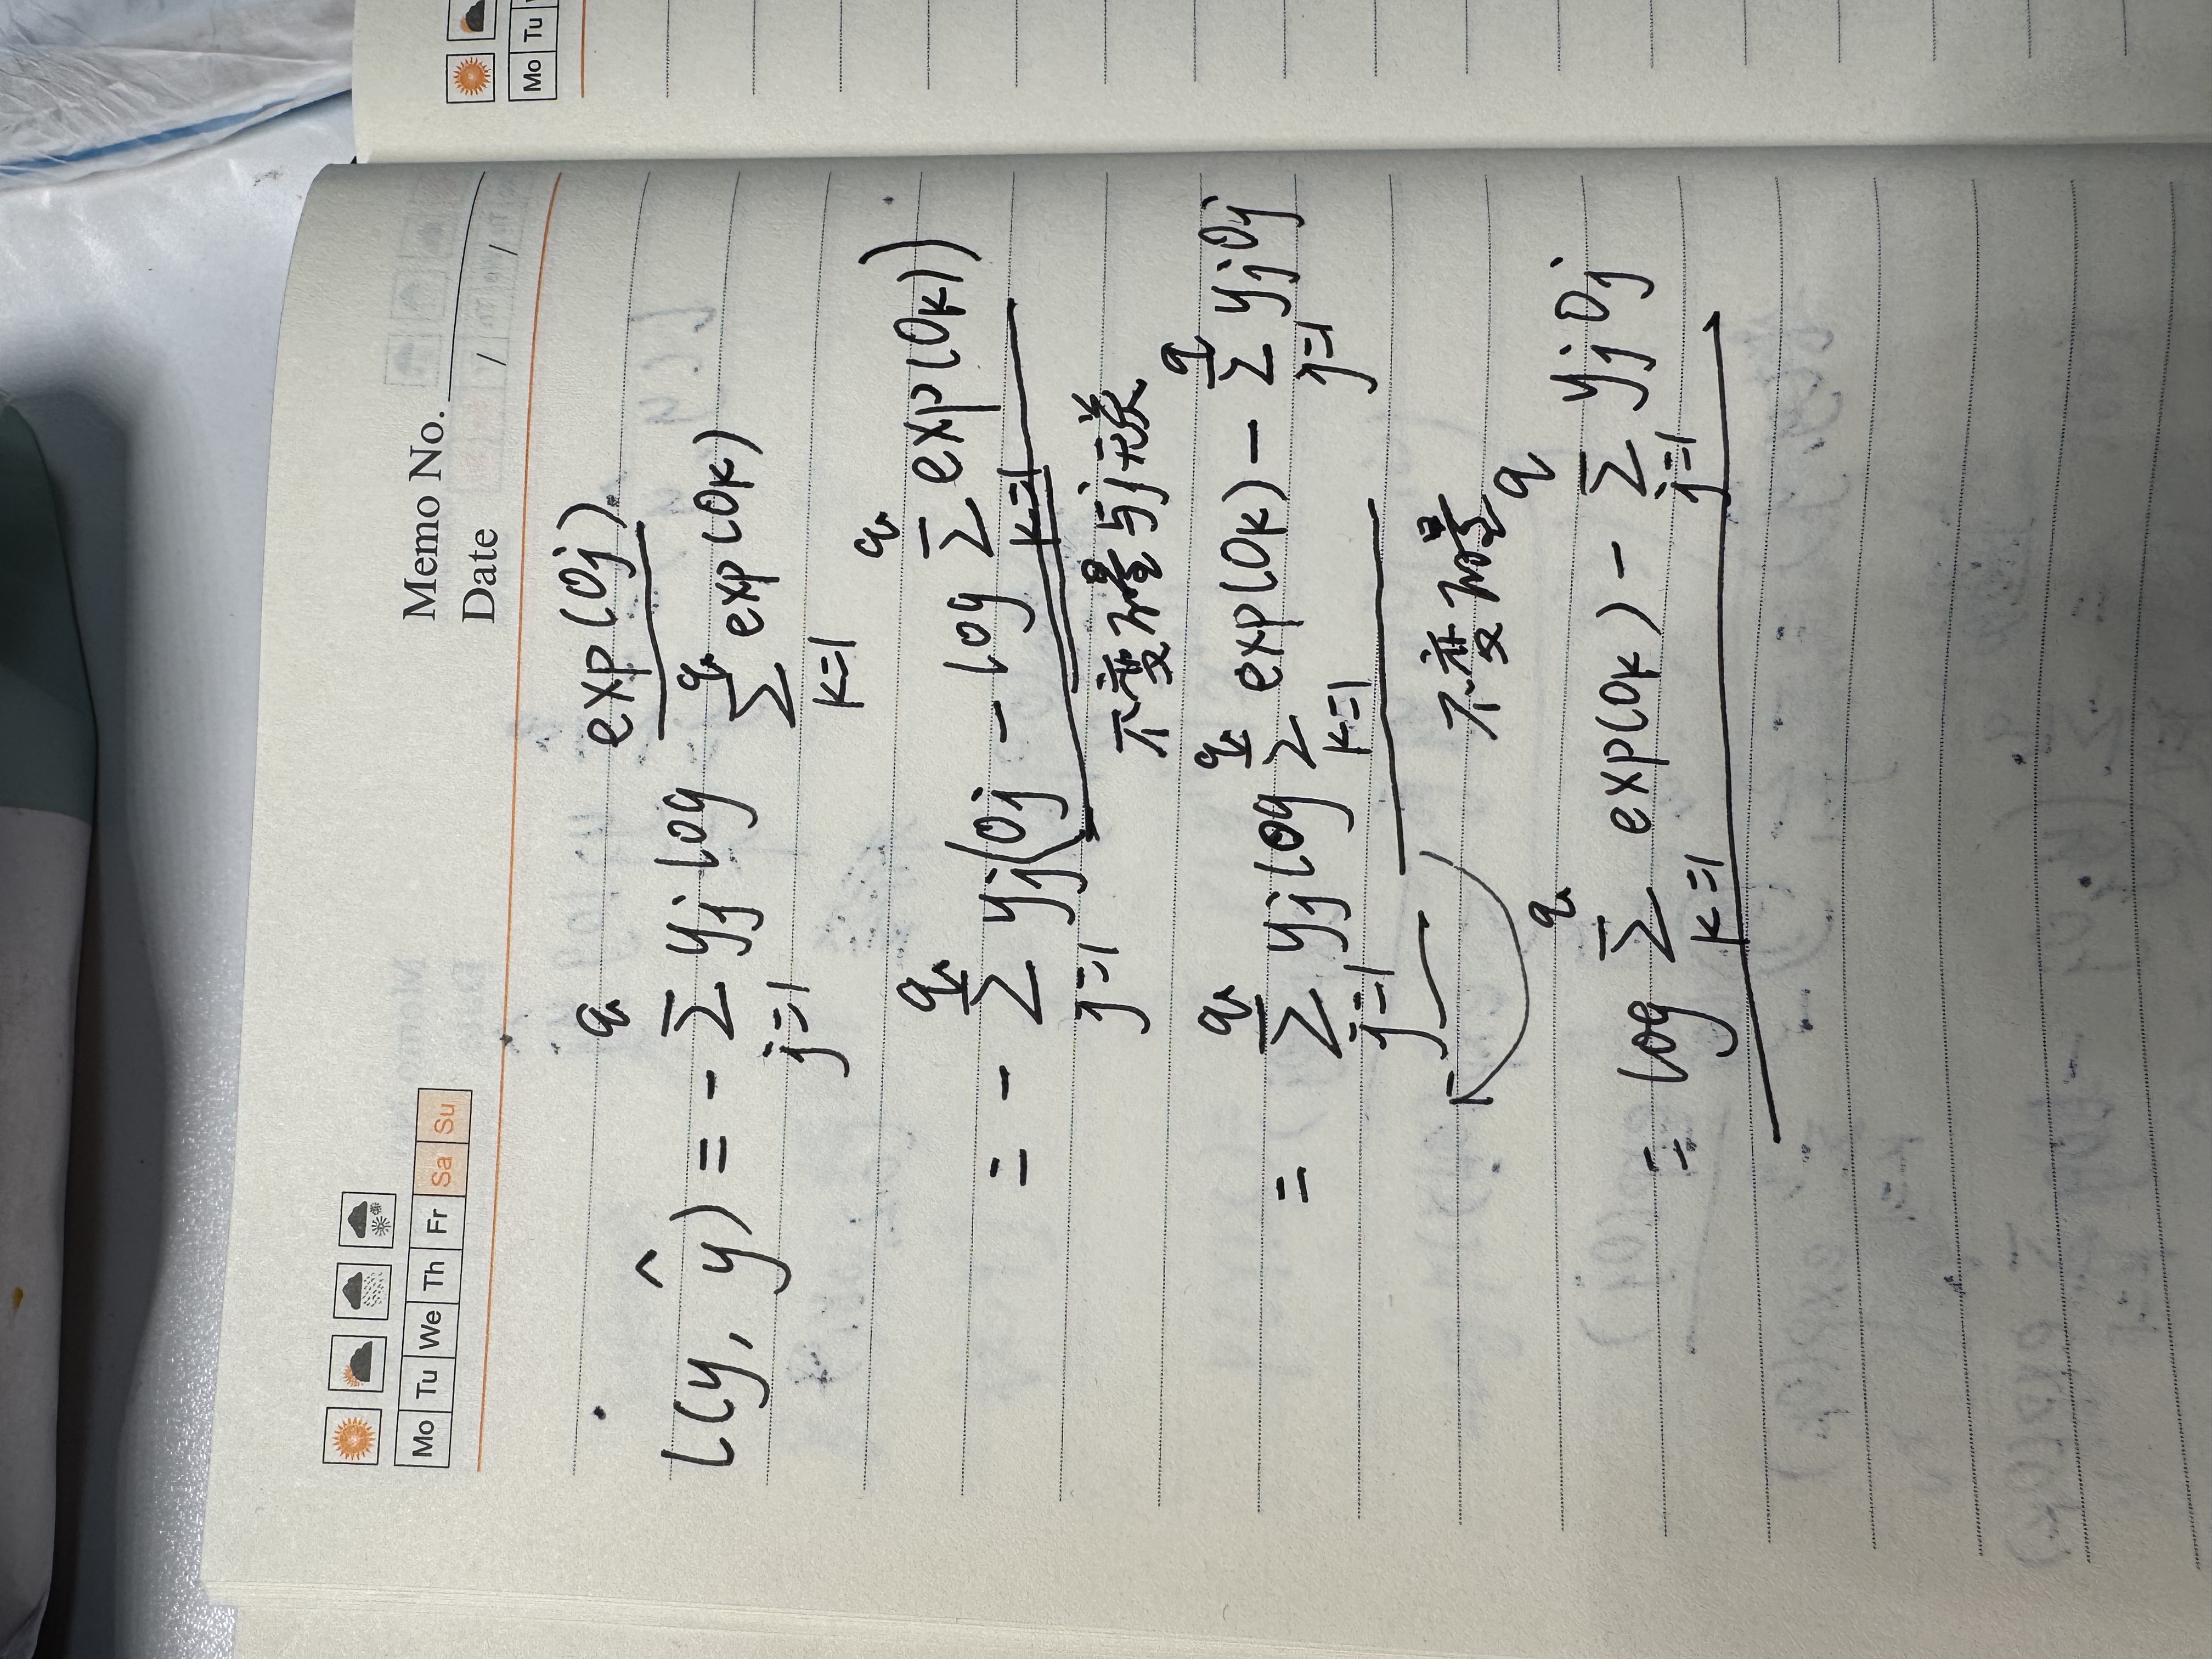 Mo Tu We Th Fr Sa Su
Memo No.
Date / /
Mo Tu
l(y, ŷ) = - Σ_{j=1}^{q} yj log exp(oj) / Σ_{k=1}^{q} exp(ok)
= - Σ_{j=1}^{q} yj(oj - log Σ_{k=1}^{q} exp(ok))
不变量与j无关
= Σ_{j=1}^{q} yj log Σ_{k=1}^{q} exp(ok) - Σ_{j=1}^{q} yj oj
不变量
= log Σ_{k=1}^{q} exp(ok) - Σ_{j=1}^{q} yj oj